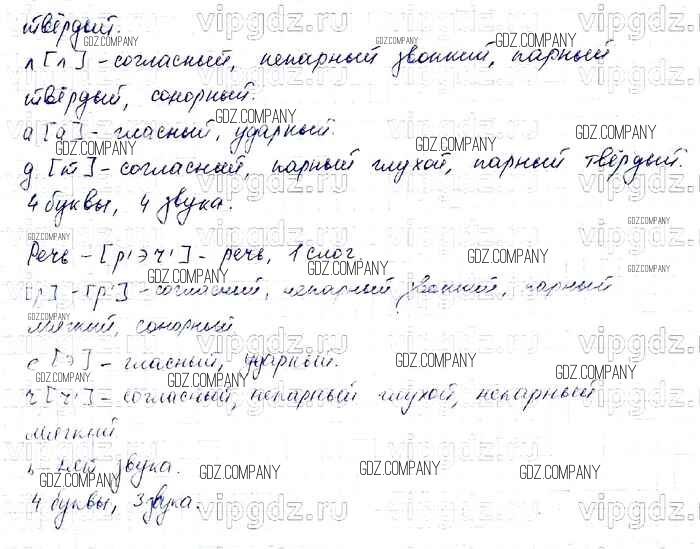 твёрдый.
л [л] - согласный, непарный звонкий, парный
твёрдый, сонорный.
а [а] - гласный, ударный.
д [т] - согласный, парный глухой, парный твёрдый.
4 буквы, 4 звука.
Речь - [р'эч'] - речь, 1 слог.
[р] - [р'] - согласный, непарный звонкий, парный
мягкий, сонорный
е [э] - гласный, ударный.
ч [ч'] - согласный, непарный глухой, непарный
мягкий
ь - нет звука.
4 буквы, 3 звука.
GDZ.COMPANY
vipgdz.ru